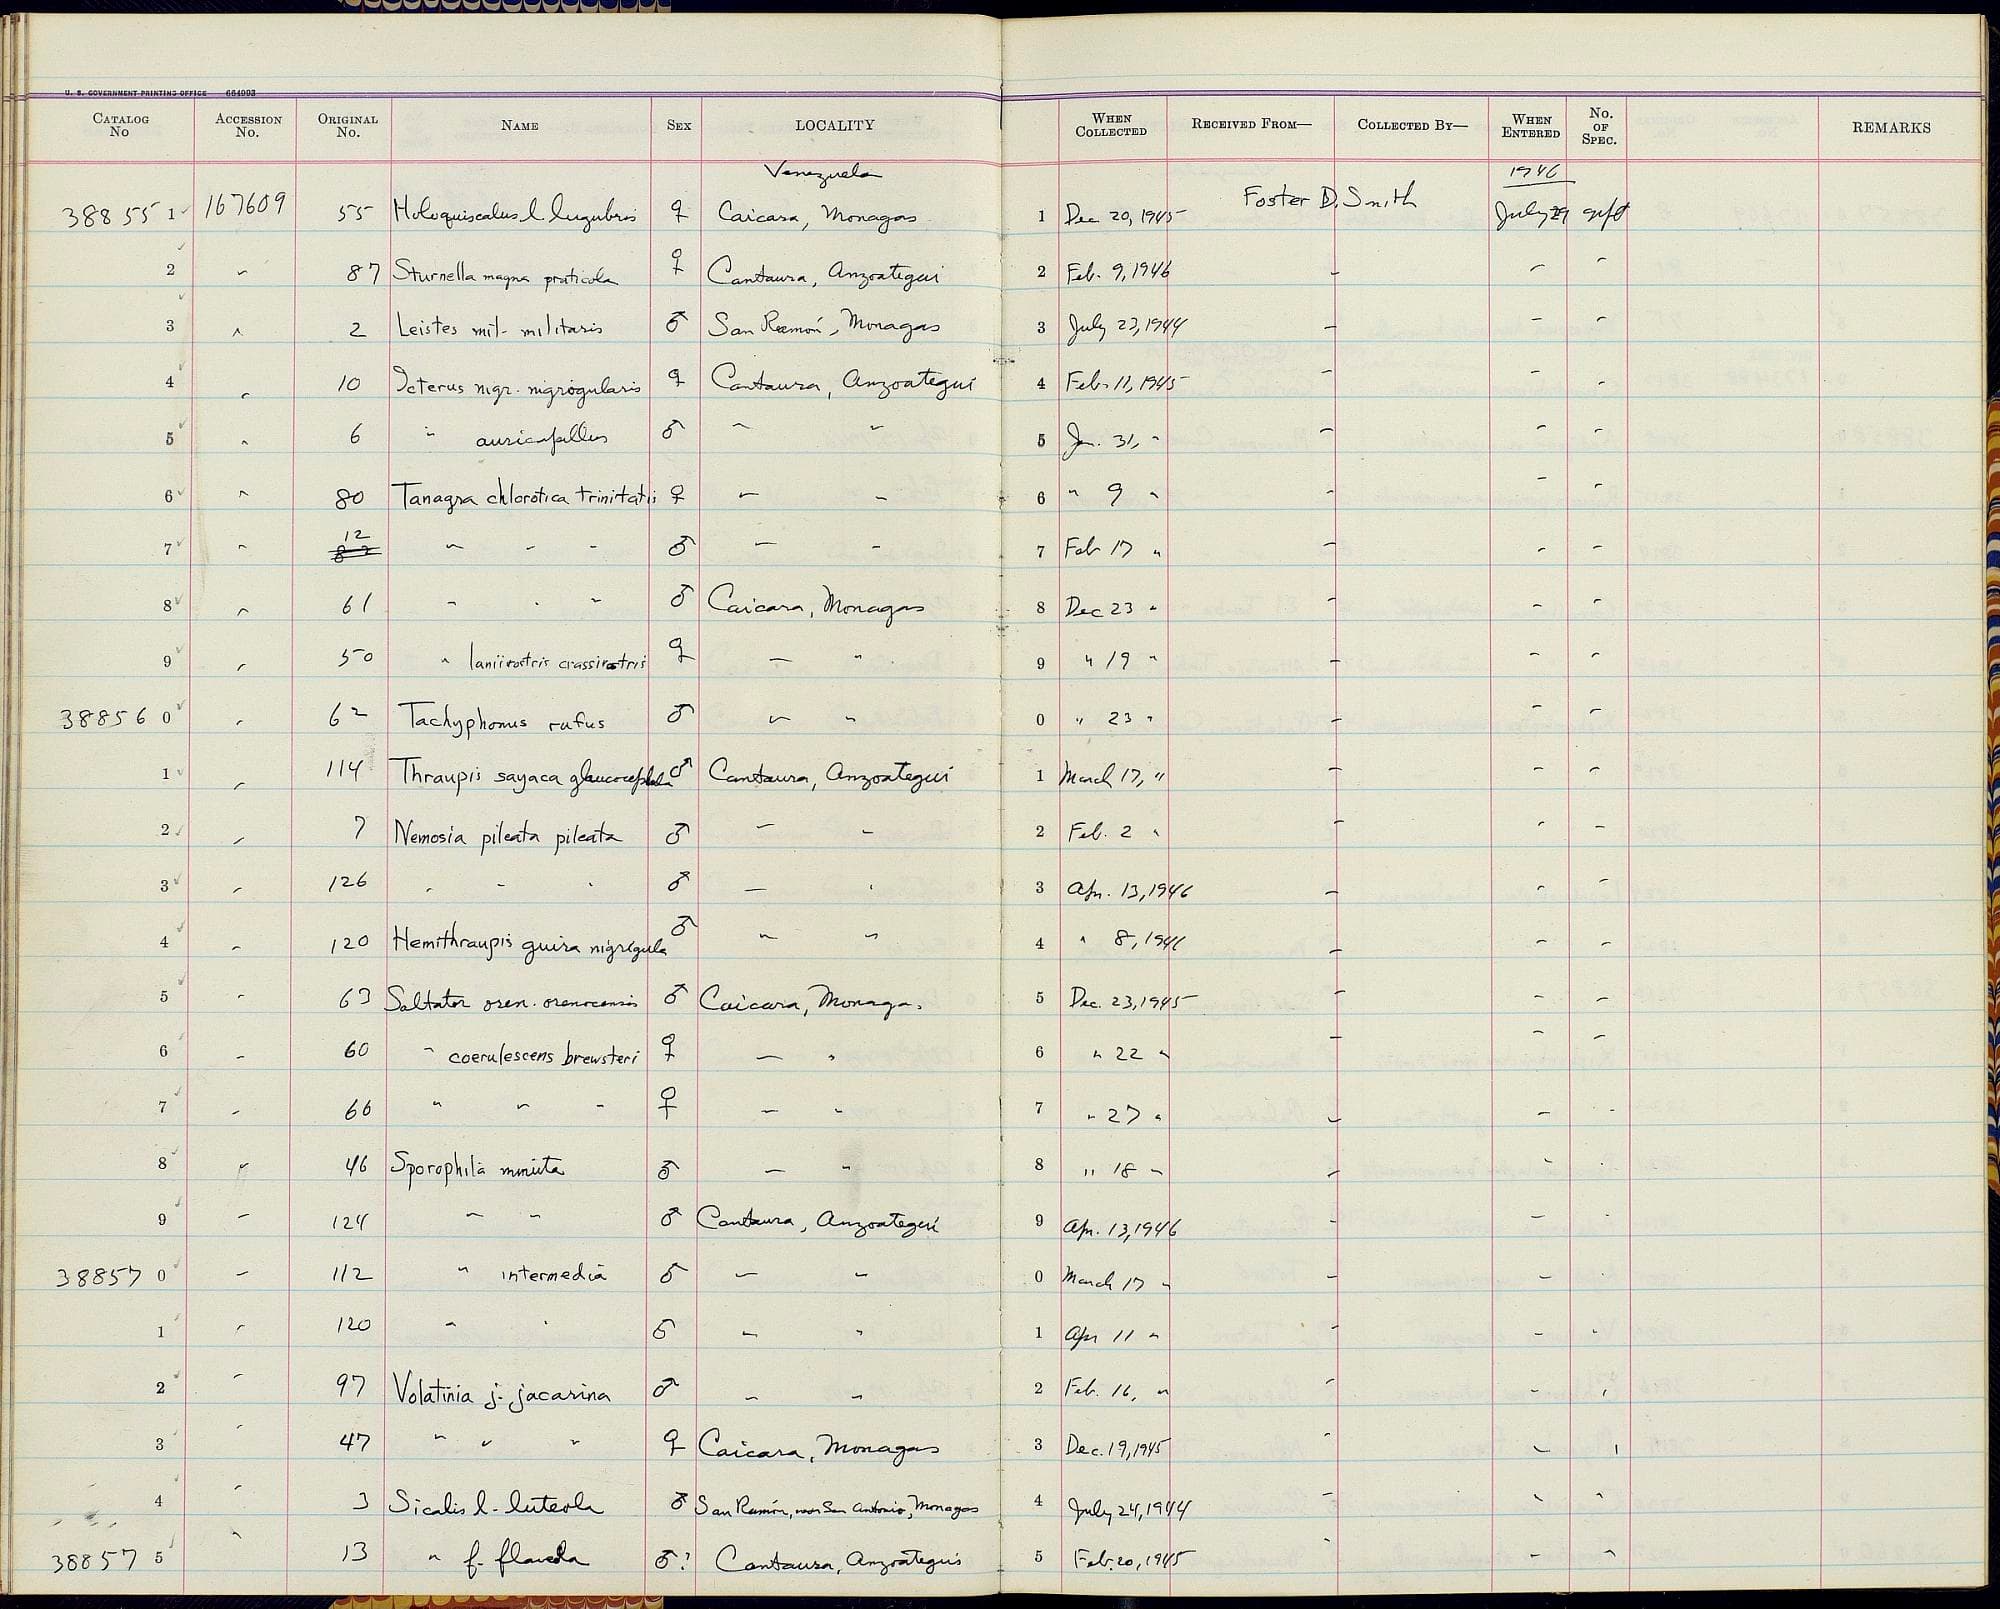 U. S. GOVERNMENT PRINTING OFFICE 664993
CATALOG No ACCESSION No. ORIGINAL No. NAME SEX LOCALITY WHEN COLLECTED RECEIVED FROM— COLLECTED BY— WHEN ENTERED No. OF SPEC. REMARKS
Venezuela 1946
38855 1 167609 55 Holoquiscalus l. lugubris ♀ Caicara, Monagas 1 Dec 20, 1945 Foster D. Smith July 29 gift
2 " 87 Sturnella magna praticola ♀ Cantaura, Anzoategui 2 Feb. 9, 1946 " " "
3 " 2 Leistes mil- militaris ♂ San Ramón, Monagas 3 July 23, 1944 " " "
4 " 10 Icterus nigr. nigrogularis ♀ Cantaura, Anzoategui 4 Feb. 11, 1945 " " "
5 " 6 " auricapillus ♂ " " 5 Jan. 31, " " " "
6 " 80 Tanagra chlorotica trinitatis ♀ " " 6 " 9 " " " "
7 " 12 " " " ♂ " " 7 Feb 17 " " " "
8 " 61 " " " ♂ Caicara, Monagas 8 Dec 23 " " " "
9 " 50 " laniirostris crassirostris ♀ " " 9 " 19 " " " "
38856 0 " 62 Tachyphonus rufus ♂ " " 0 " 23 " " " "
1 " 114 Thraupis sayaca glaucocephala ♂ Cantaura, Anzoategui 1 March 17, " " " "
2 " 7 Nemosia pileata pileata ♂ " " 2 Feb. 2 " " " "
3 " 126 " " " ♂ " " 3 Apr. 13, 1946 " " "
4 " 120 Hemithraupis guira nigrigula ♂ " " 4 " 8, 1946 " " "
5 " 63 Saltator oren. orenocensis ♂ Caicara, Monagas 5 Dec. 23, 1945 " " "
6 " 60 " coerulescens brewsteri ♀ " " 6 " 22 " " " "
7 " 66 " " " ♀ " " 7 " 27 " " " "
8 " 46 Sporophila minuta ♂ " " 8 " 18 " " " "
9 " 124 " " ♂ Cantaura, Anzoategui 9 Apr. 13, 1946 " " "
38857 0 " 112 " intermedia ♂ " " 0 March 17 " " " "
1 " 120 " " ♂ " " 1 Apr 11 " " " "
2 " 97 Volatinia j. jacarina ♂ " " 2 Feb. 16, " " " "
3 " 47 " " " ♀ Caicara, Monagas 3 Dec. 19, 1945 " " "
4 " 3 Sicalis l. luteola ♂ San Ramón, near San Antonio, Monagas 4 July 24, 1944 " " "
38857 5 " 13 " f. flaveola ♂? Cantaura, Anzoategui 5 Feb. 20, 1945 " " "